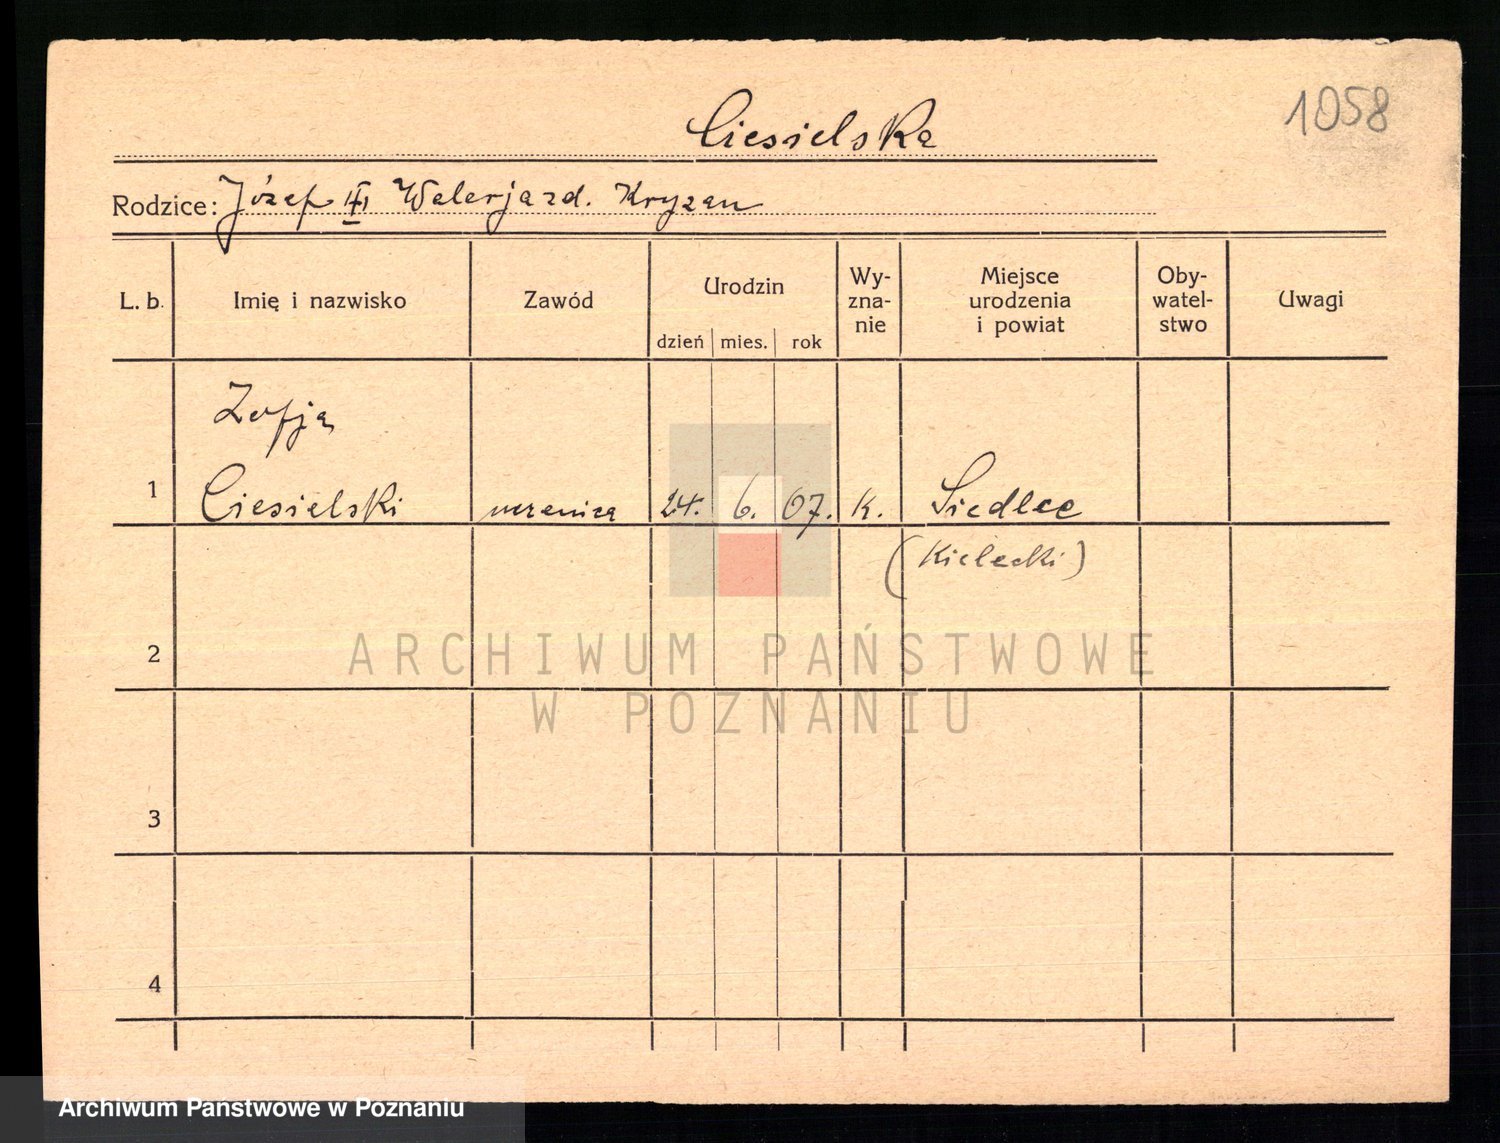 1058
Ciesielska
Rodzice: Józef III Walerja zd. Kryzan
L. b. Imię i nazwisko Zawód Urodzin dzień mies. rok Wy-zna-nie Miejsce urodzenia i powiat Oby-watel-stwo Uwagi
Zofja
1 Ciesielski uczenica 24. 6. 07. K. Siedlce
(Kielecki)
2
ARCHIWUM PAŃSTWOWE
W POZNANIU
3
4
Archiwum Państwowe w Poznaniu